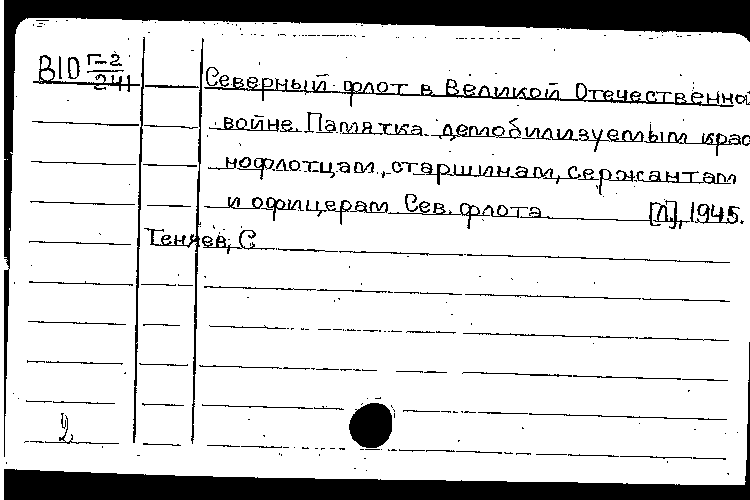 В10 Г-2/241
Северный флот в Великой Отечественной
войне. Памятка демобилизуемым крас
нофлотцам, старшинам, сержантам
и офицерам Сев. флота [Л.], 1945.
Теняев, С
2